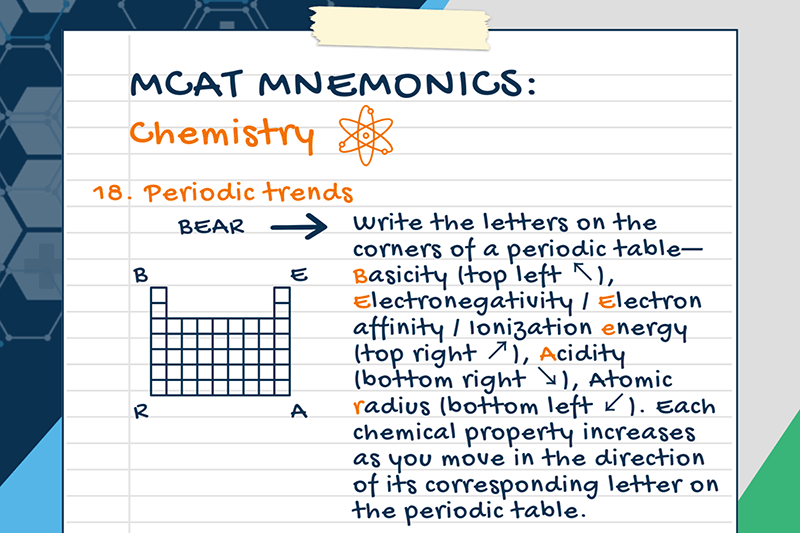 MCAT MNEMONICS:
Chemistry
18. Periodic trends
BEAR
Write the letters on the
corners of a periodic table—
Basicity (top left ↖),
Electronegativity / Electron
affinity / Ionization energy
(top right ↗), Acidity
(bottom right ↘), Atomic
radius (bottom left ↙). Each
chemical property increases
as you move in the direction
of its corresponding letter on
the periodic table.
B E
R A